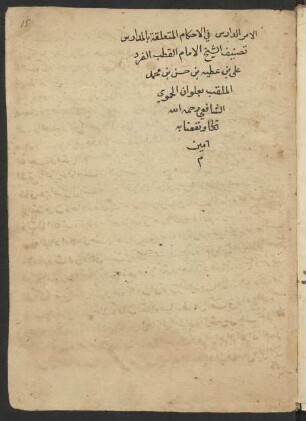 15
الامر الدارس في الاحكام المتعلقة بالمدارس
تصنيف الشيخ الامام القطب الفرد
علي بن عطيه بن حسن بن محمد
الملقب بعلوان الحموي
الشافعي رحمه الله
ونفعنا به
امين
م